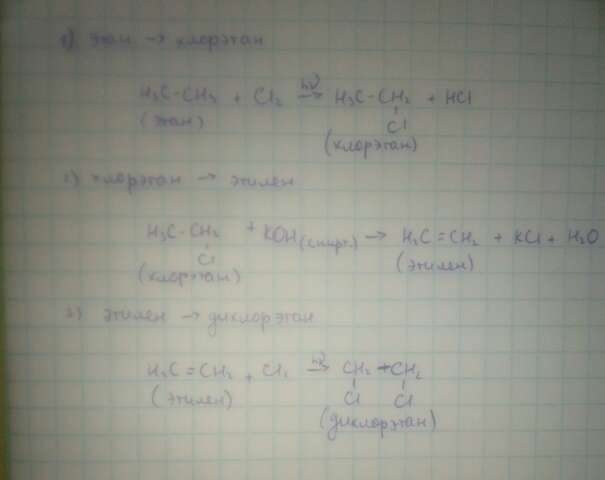 1) этан → хлорэтан
H₃C-CH₃ + Cl₂ →(hν) H₃C-CH₂ + HCl
(этан) Cl
(хлорэтан)
2) хлорэтан → этилен
H₃C-CH₂ + KOH(спирт.) → H₂C=CH₂ + KCl + H₂O
Cl (этилен)
(хлорэтан)
3) этилен → дихлорэтан
H₂C=CH₂ + Cl₂ →(hν) CH₂-CH₂
(этилен) Cl Cl
(дихлорэтан)